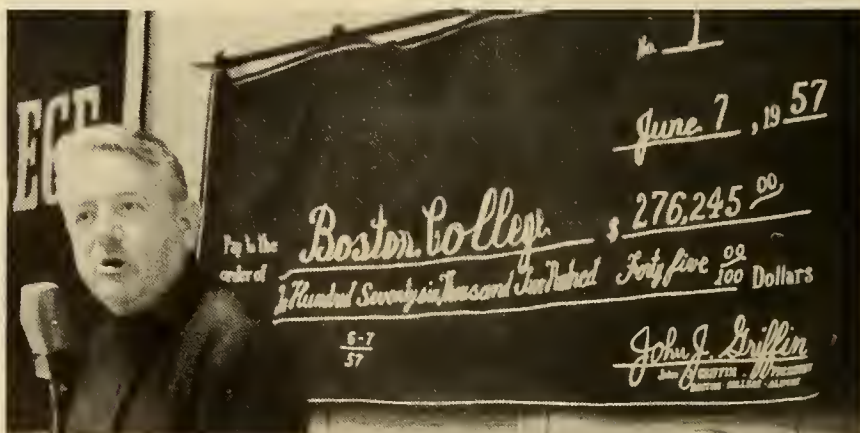 EGE
No. 1
June 7, 19 57
Pay to the
order of Boston College $ 276,245 00
Hundred Seventy six Thousand Two Hundred Forty five 00/100 Dollars
6-7
57
John J. Griffin
John J. GRIFFIN - PRESIDENT
BOSTON COLLEGE ALUMNI